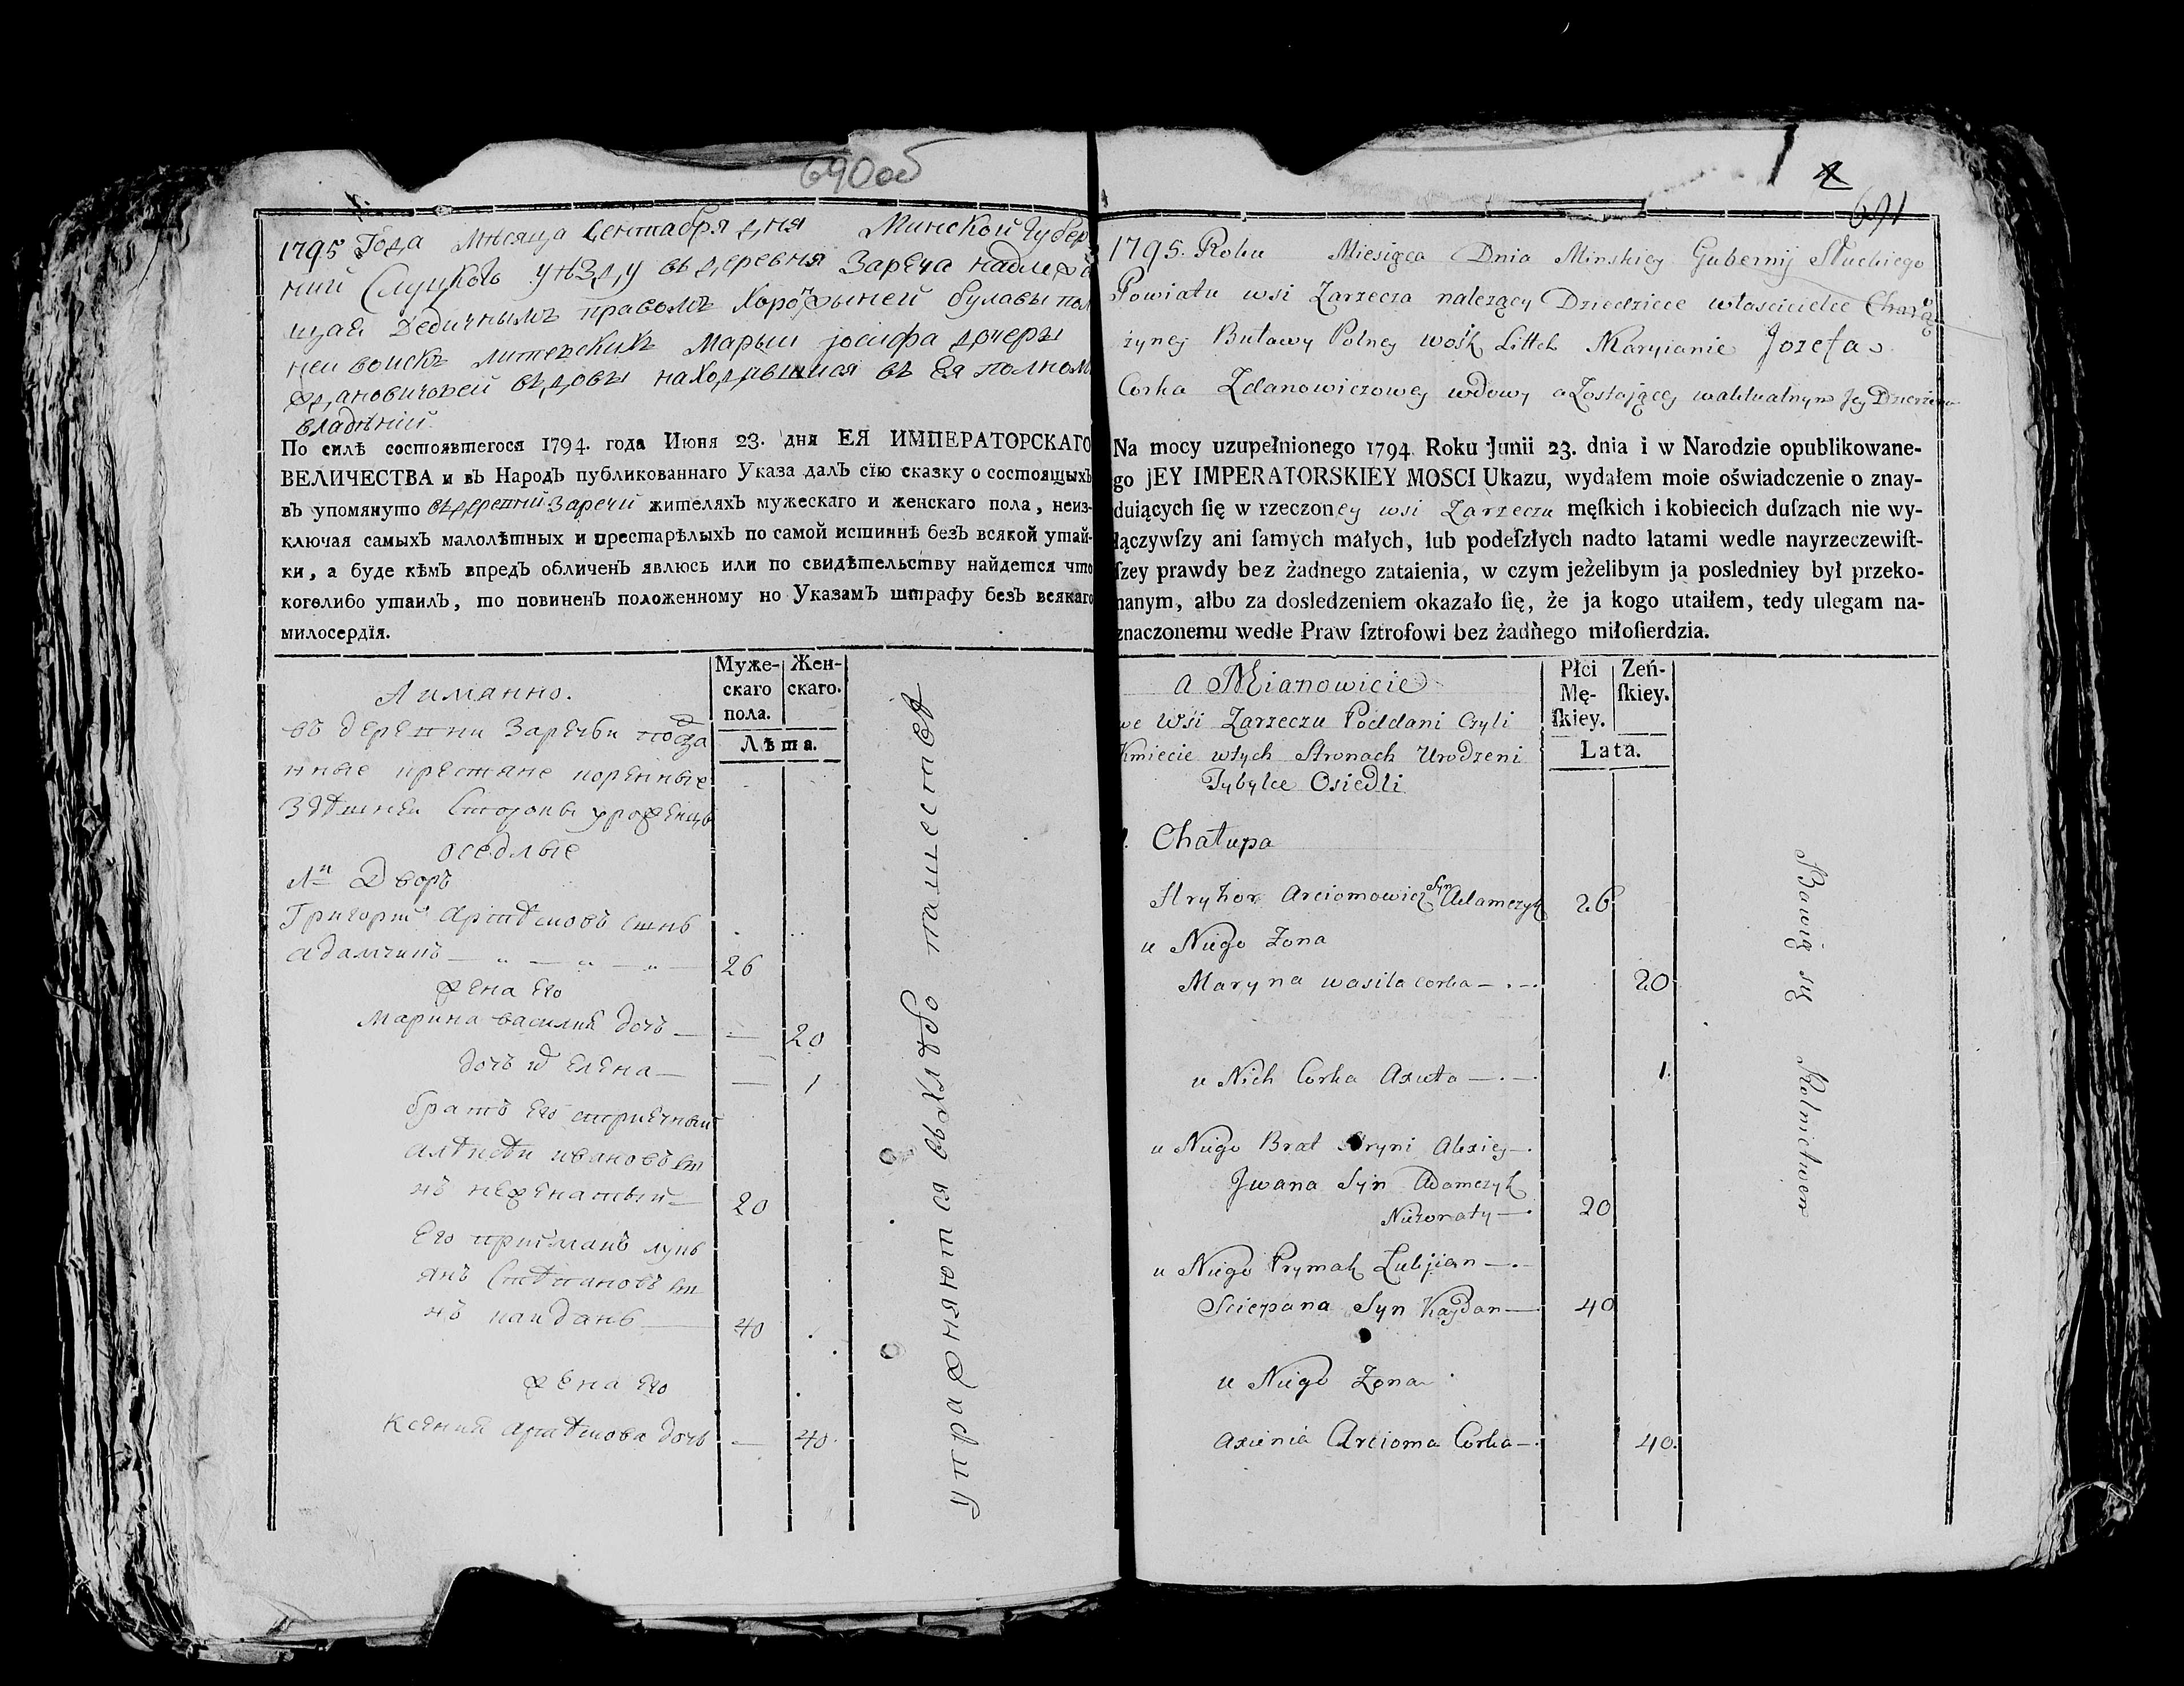 690об
1795 Года Мѣсяца Сентября дня Минской Губер
ний Слуцкого уѣзду въ деревня Зареча надлежа
щая Дедичнымъ правомъ Хоронжыней булавы пол
ней войскъ литевскихъ Марыи іосифа дочеры
Ждановичовей вѣдовы находившися въ Ея полном
владѣний
По силѣ состоявшегося 1794. года Июня 23. дня ЕЯ ИМПЕРАТОРСКАГО
ВЕЛИЧЕСТВА и въ Народъ публикованнаго Указа далъ сїю сказку о состоящыхъ
въ упомянуто въ деревний Заречи жителяхъ мужескаго и женскаго пола, неиз-
ключая самыхъ малолѣтныхъ и престарѣлыхъ по самой истиннѣ безъ всякой утай-
ки, а буде кѣмъ впредъ обличенъ явлюсь или по свидѣтельству найдется что
коголибо утаилъ, то повиненъ положенному по Указамъ штрафу безъ всякаго
милосердїя.
Муже-
скаго
пола.
Жен-
скаго.
Лѣта.
А имянно.
въ деревни Заречьи подда
нные крестяне коренные
здѣшней стороны уроженцы
оседлые
Дворъ
Григорий Артѣмовъ сынъ
Адамчикъ 26
жена его
Марина василия дочъ — — 20
дочъ Елена — — 1
братъ его стриечный
алѣксѣи ивановъ сы
нъ неженатый — 20
Его приймакъ лукь
янъ Стѣпановъ сы
нъ каиданъ 40
жена его
Ксения артѣмова дочь — 40
упражняются въ хлѣбопашестве
691
1795. Roku Miesiąca Dnia Minskiey Gubernij Słuckiego
Powiatu wsi Zarzecza nalezący Dziedzicce własciciełce Chorą
zyney Buławy Polney wośk Littch Maryianie Jozefa
Corka Zdanowiczowey wdowy a Zostającey waktualnym Jey Dzierzeniu
Na mocy uzupełnionego 1794 Roku Junii 23. dnia i w Narodzie opublikowane-
go jEY IMPERATORSKIEY MOSCI Ukazu, wydałem moie oświadczenie o znay-
duiących ſię w rzeczoney wsi Zarzeczu męſkich i kobiecich duſzach nie wy-
łączywſzy ani ſamych małych, lub podeſzłych nadto latami wedle nayrzeczewiſt-
ſzey prawdy bez żadnego zataienia, w czym jeżelibym ja posledniey był przeko-
nanym, albo za dosledzeniem okazało ſię, że ja kogo utaiłem, tedy ulegam na-
znaczonemu wedle Praw ſztrofowi bez żadnego miłoſierdzia.
Płci
Mę-
ſkiey.
Zeń-
ſkiey.
Lata.
a Mianowicie
we Wsi Zarzeczu Poddani Czyli
Kmiecie wtych Stronach Urodzeni
Tybylce Osiedli
Chałupa
Hryhor Arciomowicz Syn Adamczyk 26
u Niego Zona
Maryna wasila corka 20
u Nich Corka Axuta 1.
u Niego Brat Stryni Alexiey
Jwana Syn Adamczyk
Nieżonaty 20
u Niego Prymak Lukjian
Sciepana Syn Kaydan 40
u Niego Zona
Axienia Arcioma Corka 40.
Bawią się Rolnictwem